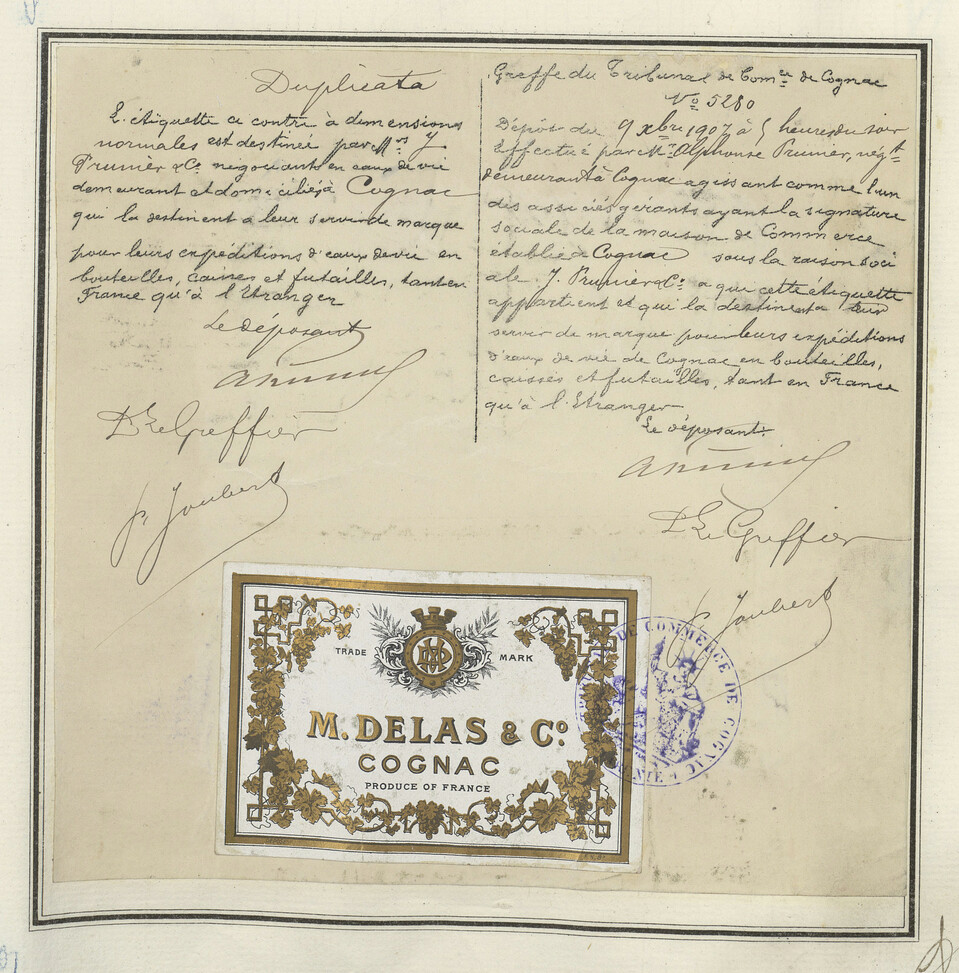 Duplicata
L'étiquette ci contre à demensions
normales est destinée par Mrs J
Prunier & Co négociants en eaux de vie
demeurant et domiciliés à Cognac
qui la destinent à leur servir de marque
pour leurs expéditions d'eaux de vie en
bouteilles, caisses et futailles, tant en
France qu'à l'Etranger
Le déposant
Le Greffier
Joubert
Greffe du Tribunal de Comce de Cognac
No 5280
Dépôt du 9 xbre 1907 à 5 heures du soir
Effectué par Mr Alphonse Prunier, négt
demeurant à Cognac agissant comme l'un
des associés gérants ayant la signature
sociale de la maison de Commerce
établie à Cognac sous la raison soci
ale J. Prunier & Co a qui cette étiquette
appartient et qui la destinent à leur
servir de marque pour leurs expéditions
d'eaux de vie de Cognac en bouteilles,
caisses et futailles, tant en France
qu'à l'Etranger
Le déposant
Le Greffier
Joubert
TRADE MARK
M. DELAS & Co
COGNAC
PRODUCE OF FRANCE
DE COMMERCE DE COGNAC